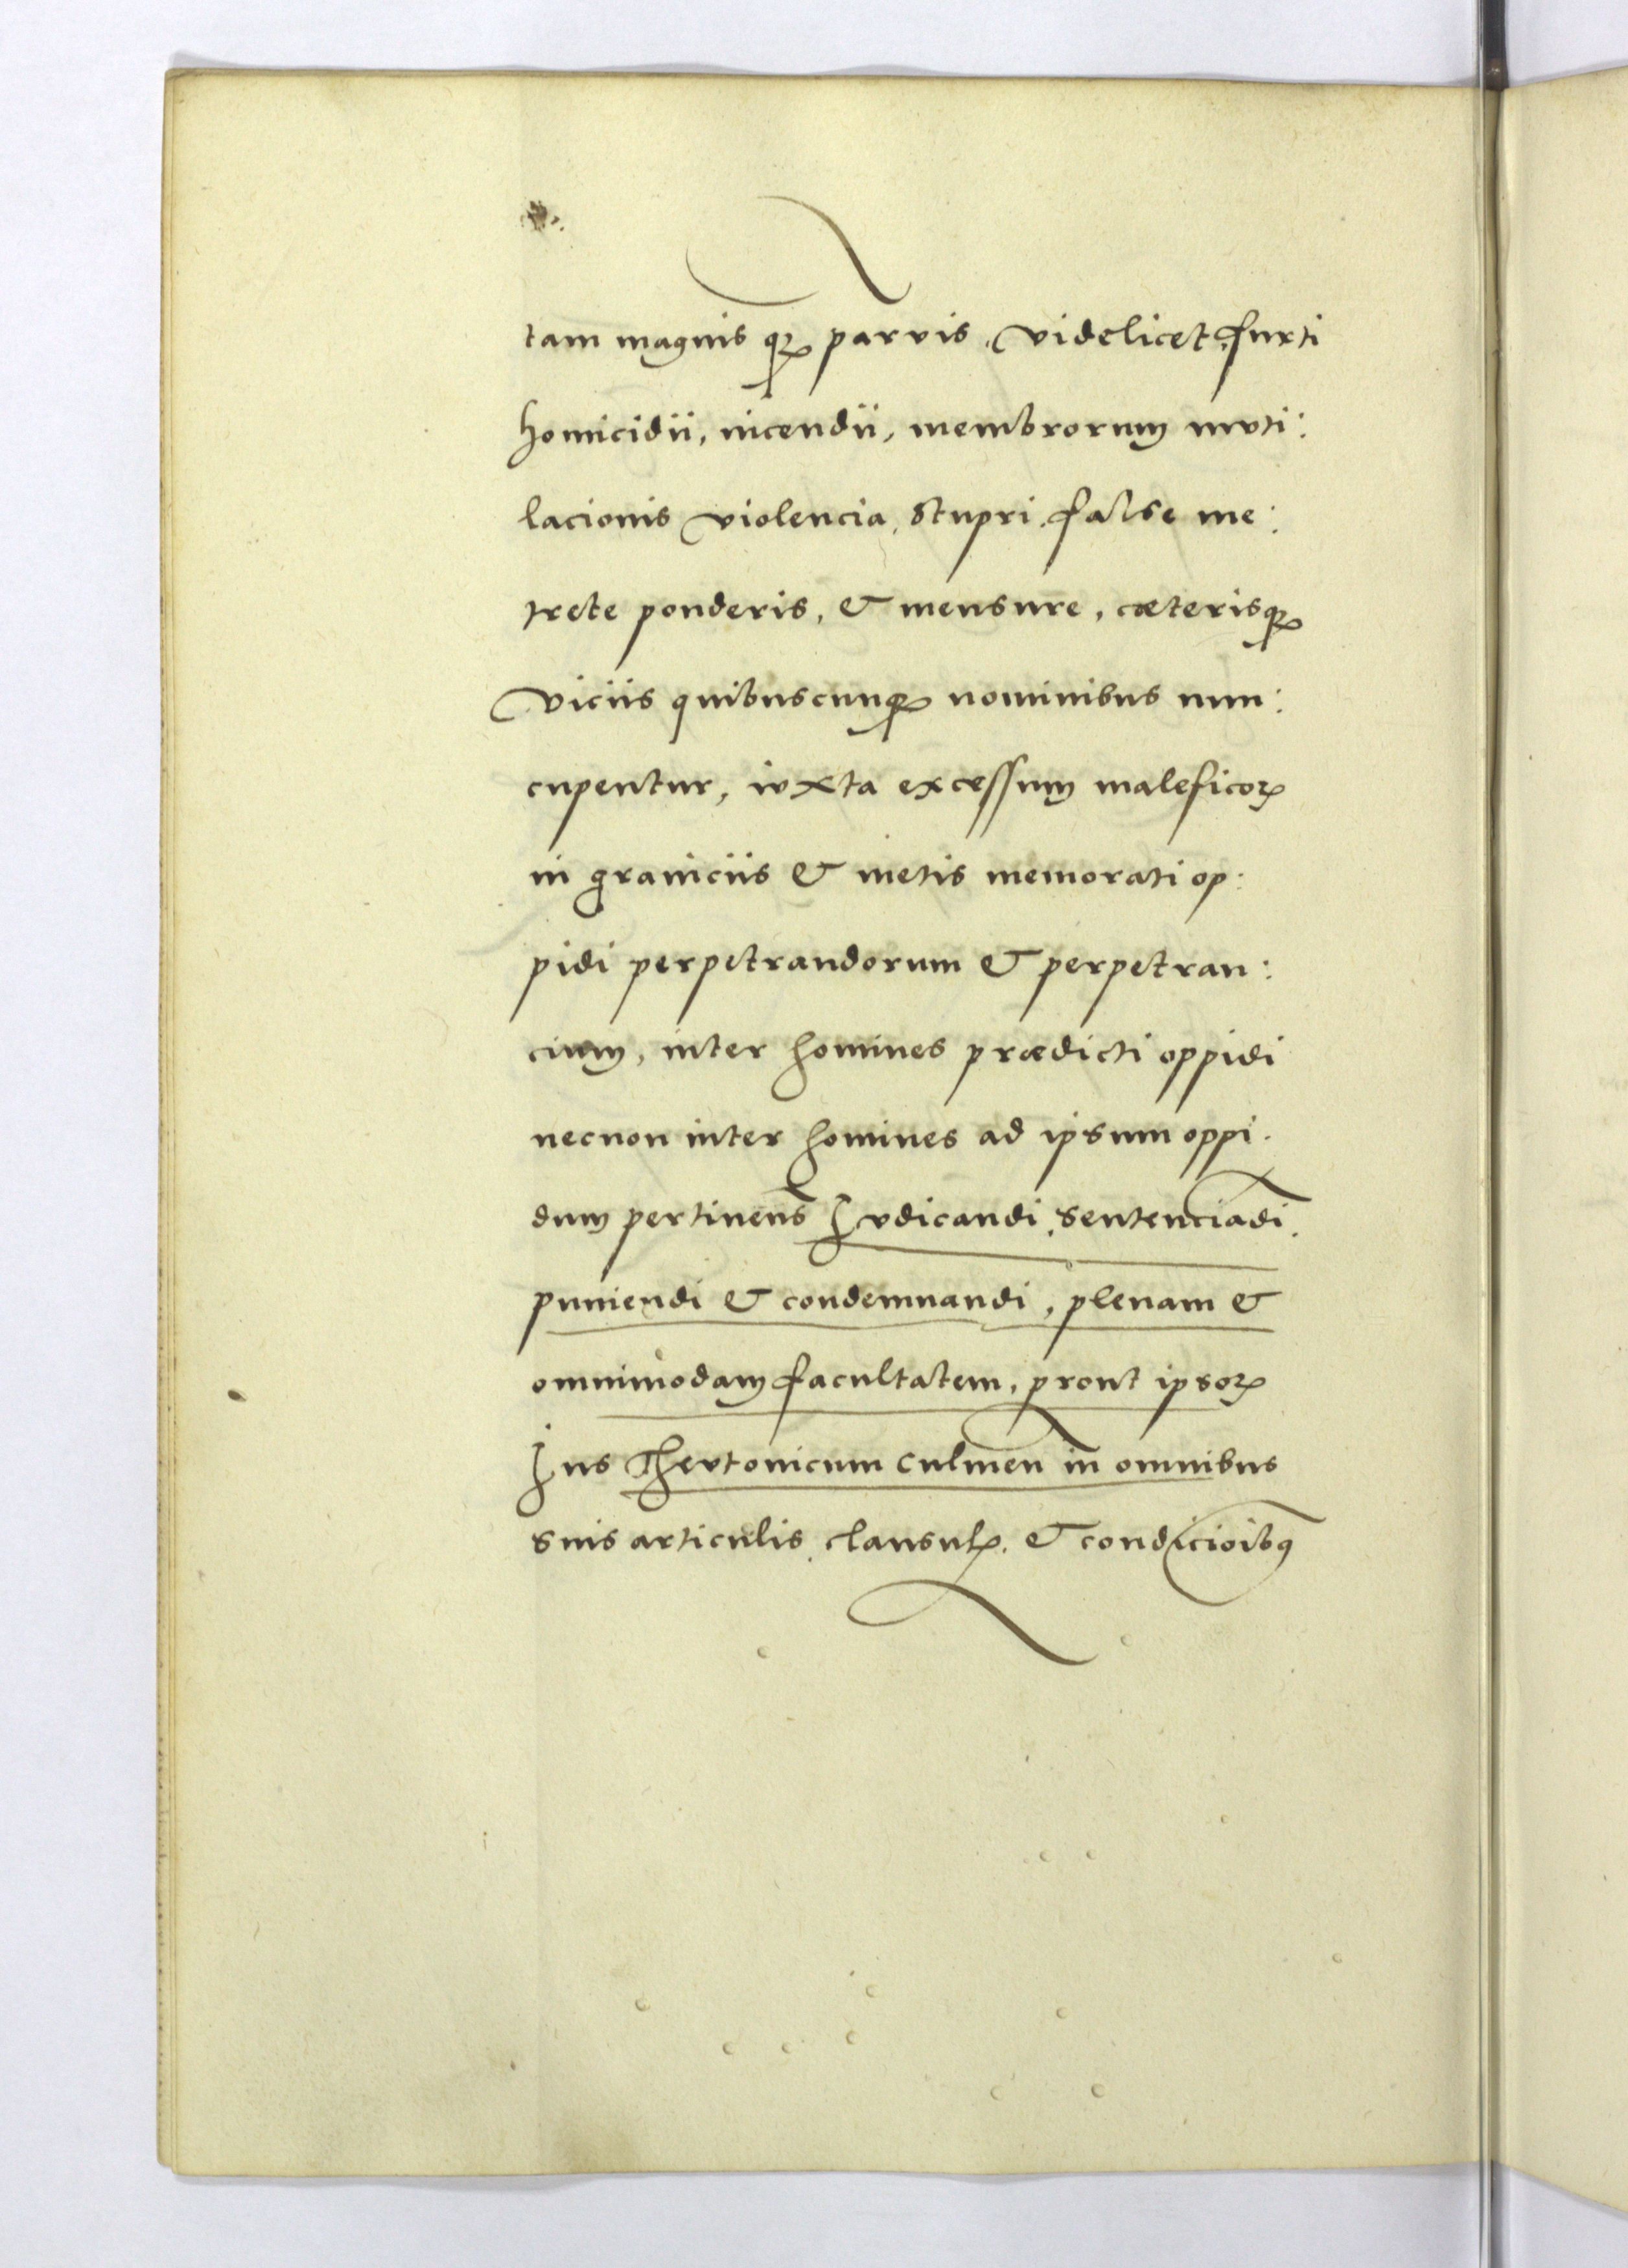 tam magnis qꝫ parvis, videlicet, furti
homicidii, incendii, membrorum muti:
lacionis violencia, stupri, false me:
trete ponderis, & mensure, cæterisqꝫ
viciis quibuscunqꝫ nominibus nun:
cupentur, iuxta excessum maleficoꝝ
in graniciis & metis memorati op:
pidi perpetrandorum & perpetran:
cium, inter homines prædicti oppidi
necnon inter homines ad ipsum oppi:
dum pertinens̄ Iudicandi, sentenciādi,
puniendi & condemnandi, plenam &
omnimodam facultatem, prout ipsoꝝ
Ius Thevtonicum culmen̄ in omnibus
suis articulis, clausulꝭ, & condicioībꝰ